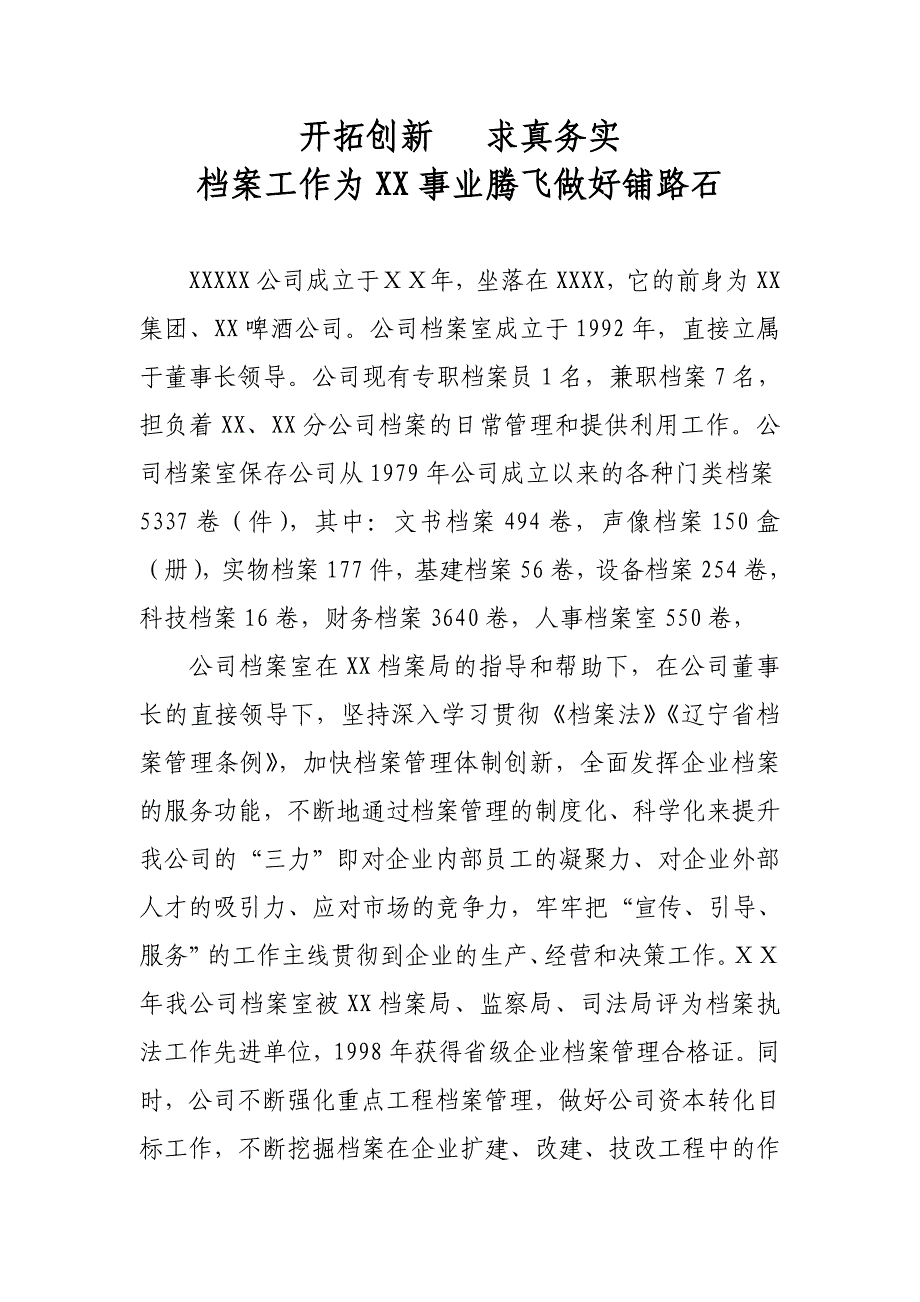 开拓创新 求真务实
档案工作为 XX 事业腾飞做好铺路石
XXXXX 公司成立于ＸＸ年，坐落在 XXXX，它的前身为 XX
集团、XX 啤酒公司。公司档案室成立于 1992 年，直接立属
于董事长领导。公司现有专职档案员 1 名，兼职档案 7 名，
担负着 XX、XX 分公司档案的日常管理和提供利用工作。公
司档案室保存公司从 1979 年公司成立以来的各种门类档案
5337 卷（件），其中：文书档案 494 卷，声像档案 150 盒
（册），实物档案 177 件，基建档案 56 卷，设备档案 254 卷，
科技档案 16 卷，财务档案 3640 卷，人事档案室 550 卷，
公司档案室在 XX 档案局的指导和帮助下，在公司董事
长的直接领导下，坚持深入学习贯彻《档案法》《辽宁省档
案管理条例》，加快档案管理体制创新，全面发挥企业档案
的服务功能，不断地通过档案管理的制度化、科学化来提升
我公司的“三力”即对企业内部员工的凝聚力、对企业外部
人才的吸引力、应对市场的竞争力，牢牢把“宣传、引导、
服务”的工作主线贯彻到企业的生产、经营和决策工作。ＸＸ
年我公司档案室被 XX 档案局、监察局、司法局评为档案执
法工作先进单位，1998 年获得省级企业档案管理合格证。同
时，公司不断强化重点工程档案管理，做好公司资本转化目
标工作，不断挖掘档案在企业扩建、改建、技改工程中的作